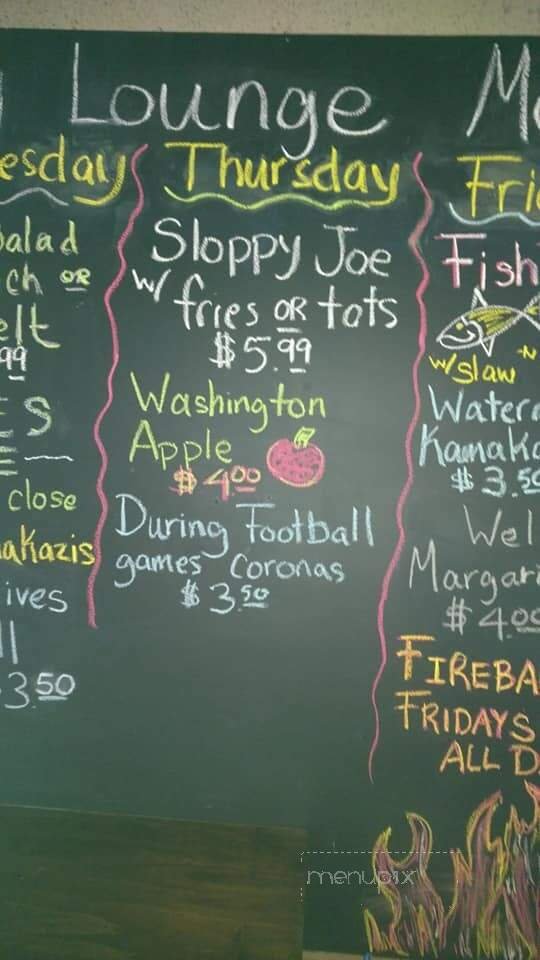 Lounge
esday
alad
ch OR
elt
99
ES
E
close
akazis
ives
ll
3.50
Thursday
Sloppy Joe
w/ fries OR tots
$5.99
Washington
Apple
$4.00
During Football
games Coronas
$3.50
Fri
Fish
w/slaw
Water
Kamaka
$3.50
Wel
Margari
$4.00
FIREBA
FRIDAYS
ALL D
menupix